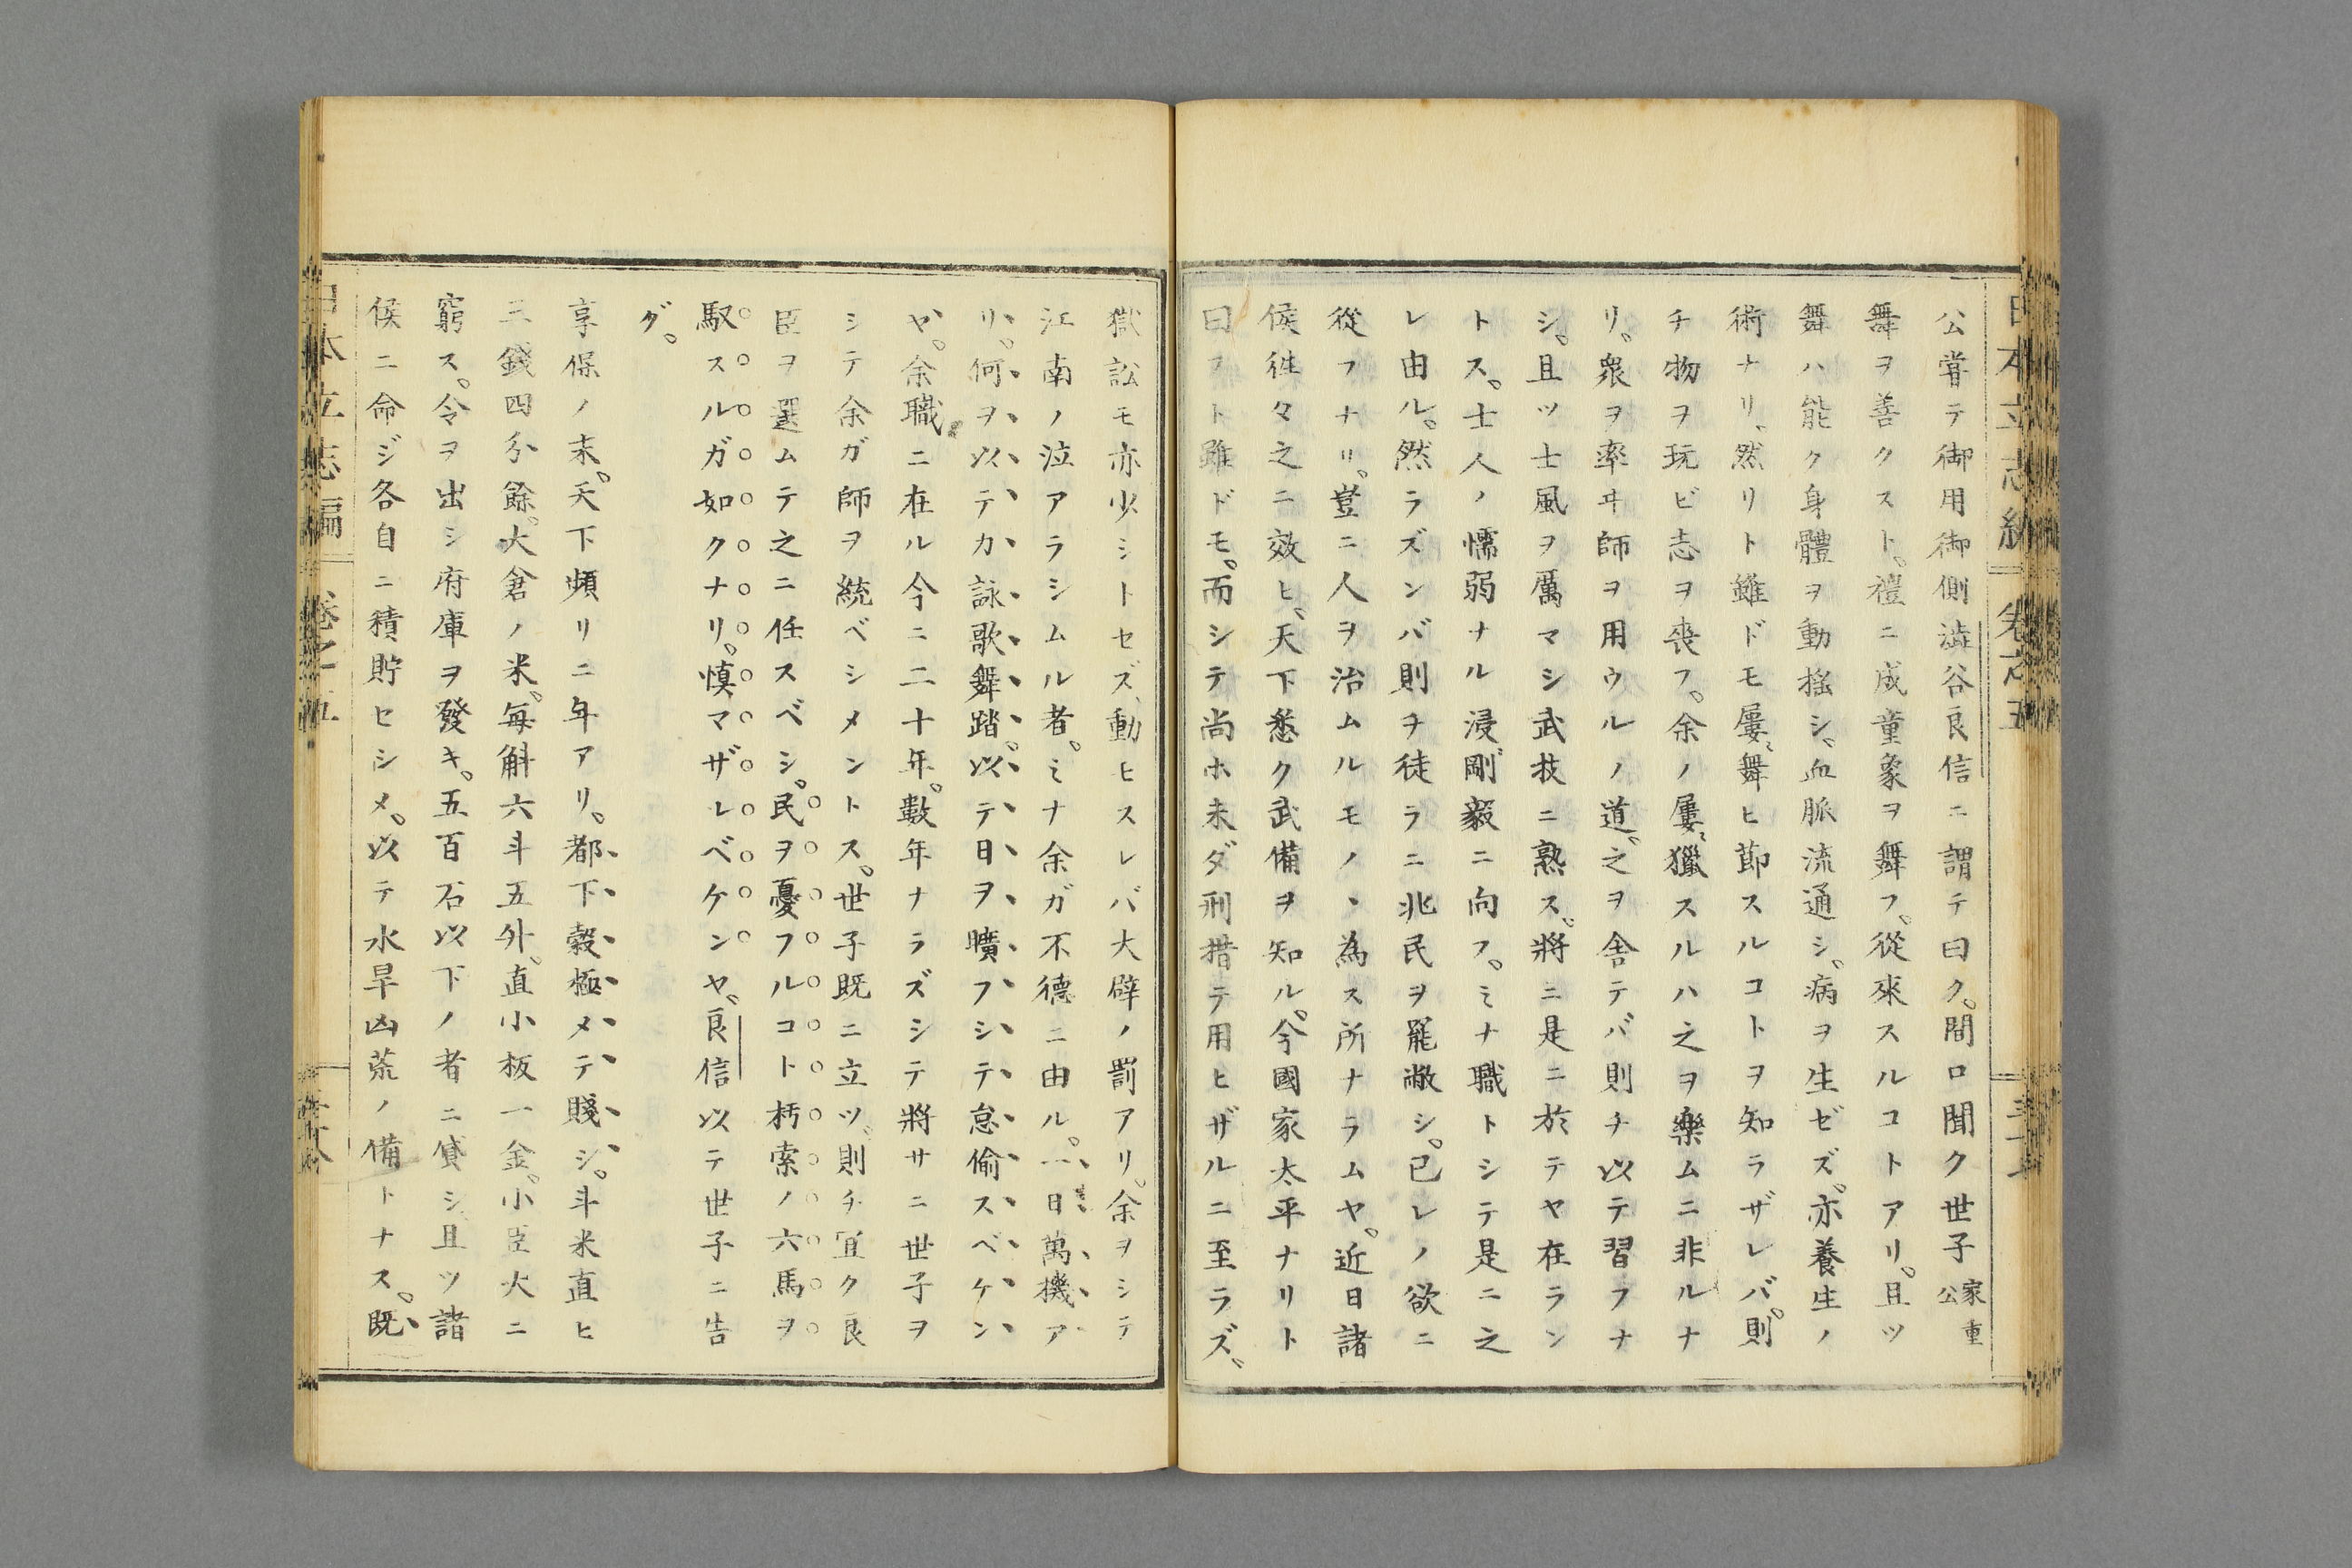 日本立志編 卷之五
公甞テ御用御側澁谷良信ニ謂テ曰ク。間ロ聞ク世子家重公
舞ヲ善クスト。禮ニ成童象ヲ舞フ。從來スルコトアリ。且ツ
舞ハ能ク身體ヲ動搖シ、血脈流通シ、病ヲ生ゼズ。亦養生ノ
術ナリ、然リト雖ドモ屢〻舞ヒ節スルコトヲ知ラザレバ。則
チ物ヲ玩ビ志ヲ喪フ。余ノ屢〻獵スルハ之ヲ樂ムニ非ルナ
リ。衆ヲ率ヰ師ヲ用ウルノ道。之ヲ舍テバ則チ以テ習フナ
シ。且ツ士風ヲ厲マシ武技ニ熟ス。將ニ是ニ於テヤ在ラン
トス。士人ノ懦弱ナル浸〻剛毅ニ向フ。ミナ職トシテ是ニ之
レ由ル。然ラズンバ則チ徒ラニ兆民ヲ罷敝シ。己レノ欲ニ
從フナリ。豈ニ人ヲ治ムルモノヽ為ス所ナラムヤ。近日諸
侯徃々之ニ效ヒ、天下悉ク武備ヲ知ル。今國家太平ナリト
曰フト雖ドモ。而シテ尚ホ未ダ刑措テ用ヒザルニ至ラズ、
獄訟モ亦少シトセズ、動ヒスレバ大辟ノ罰アリ。余ヲシテ
江南ノ泣アラシムル者。ミナ余ガ不德ニ由ル。一日萬機ア
リ。何ヲ以テカ詠歌舞踏。以テ日ヲ曠フシテ怠偷スベケン
ヤ。余職ニ在ル今ニ二十年。數年ナラズシテ將サニ世子ヲ
シテ余ガ師ヲ統ベシメントス。世子既ニ立ツ、則チ宜ク良
臣ヲ選ムテ之ニ任スベシ。民ヲ憂フルコト朽索ノ六馬ヲ
馭スルガ如クナリ。慎マザレベケンヤ、良信以テ世子ニ告
グ。
享保ノ末。天下頻リニ年アリ。都下穀極メテ賤シ。斗米直ヒ
三錢四分餘。大倉ノ米。每斛六斗五升。直小板一金。小臣大ニ
窮ス。令ヲ出シ府庫ヲ發キ。五百石以下ノ者ニ貸シ、且ツ諸
侯ニ命ジ各自ニ積貯セシメ。以テ水旱凶荒ノ備トナス。既
日本立志編 卷之五